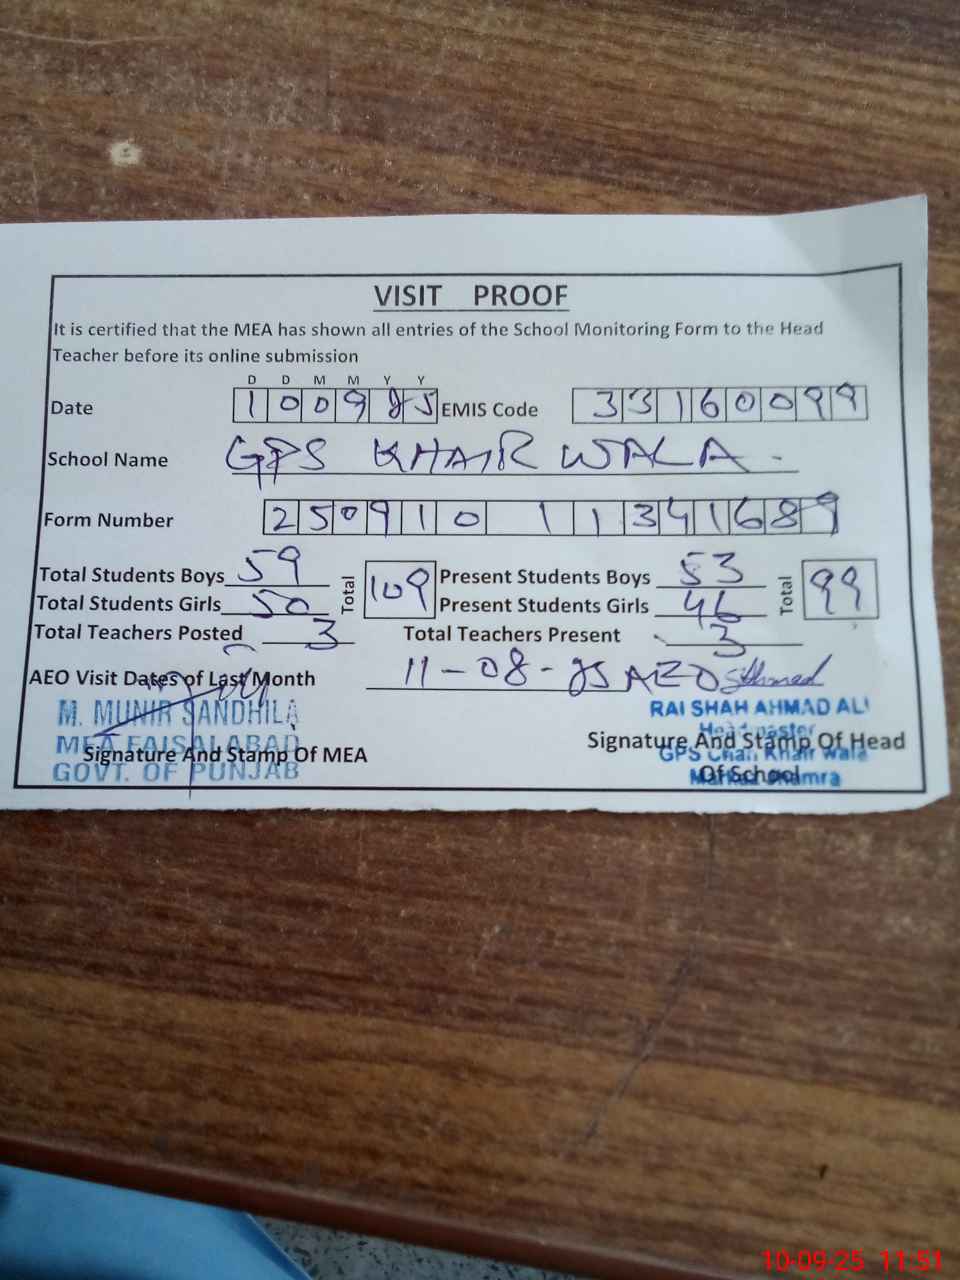 VISIT PROOF
It is certified that the MEA has shown all entries of the School Monitoring Form to the Head
Teacher before its online submission
D D M M Y Y
Date 1 0 0 9 2 5 EMIS Code 3 3 1 6 0 0 9 9
School Name GPS KHAIR WALA
Form Number 2 5 0 9 1 0 1 1 3 4 1 6 8 9
Total Students Boys 59 Total 109 Present Students Boys 53 Total 99
Total Students Girls 50 Present Students Girls 46
Total Teachers Posted 3 Total Teachers Present 3
AEO Visit Dates of Last Month 11-08-25 AEO
M. MUNIR SANDHILA
MEA FAISALABAD
GOVT. OF PUNJAB
Signature And Stamp Of MEA
RAI SHAH AHMAD ALI
Headmaster
GPS Khair Wala
Signature And Stamp Of Head
Of School
10-09-25 11:51